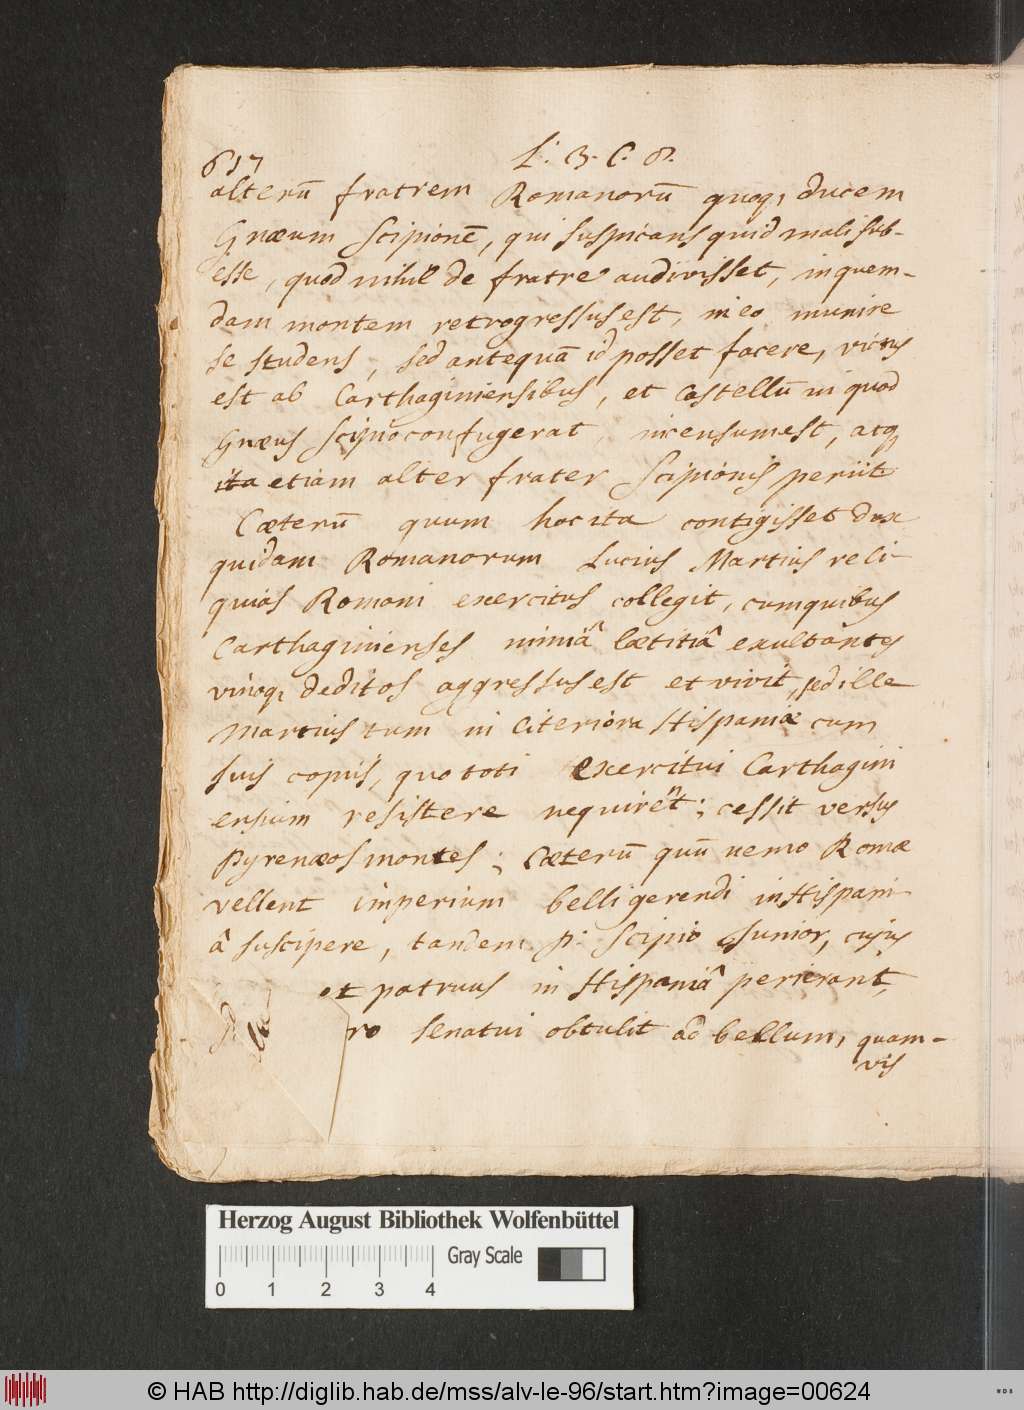 617
L: 3. C. 8.
alterū fratrem Romanorū quoq, ducem
Gnæum Scipionē, qui suspicans quid mali sub-
esse, quod nihil de fratre audivisset, in quem-
dam montem retrogressus est, in eo munire
se studens, sed antequā id posset facere, victus
est ab Carthaginiensibus, et Castellū in quod
Gnæus Scipio confugerat, incensum est, atq
ita etiam alter frater Scipionis periit
Cæterū quum hoc ita contigisset dux
quidam Romanorum Lucius Martius reli-
quias Romani exercitus collegit, cum quibus
Carthaginienses nimiâ lætitiâ exultantes
vinoq, deditos aggressus est et vicit, sed ille
Martius tum in Citeriora Hispaniæ cum
suis copiis, quo toti exercitui Carthagini
ensium resistere nequirēt; cessit versus
Pyrenæos montes; Cæterū quū nemo Romæ
vellent imperium belli gerendi in Hispani-
â suscipere, tandem P: Scipio Junior, cujus
et patruus in Hispaniâ perierant,
ro senatui obtulit ad bellum, quam-
vis
Herzog August Bibliothek Wolfenbüttel
Gray Scale
0 1 2 3 4
© HAB http://diglib.hab.de/mss/alv-le-96/start.htm?image=00624